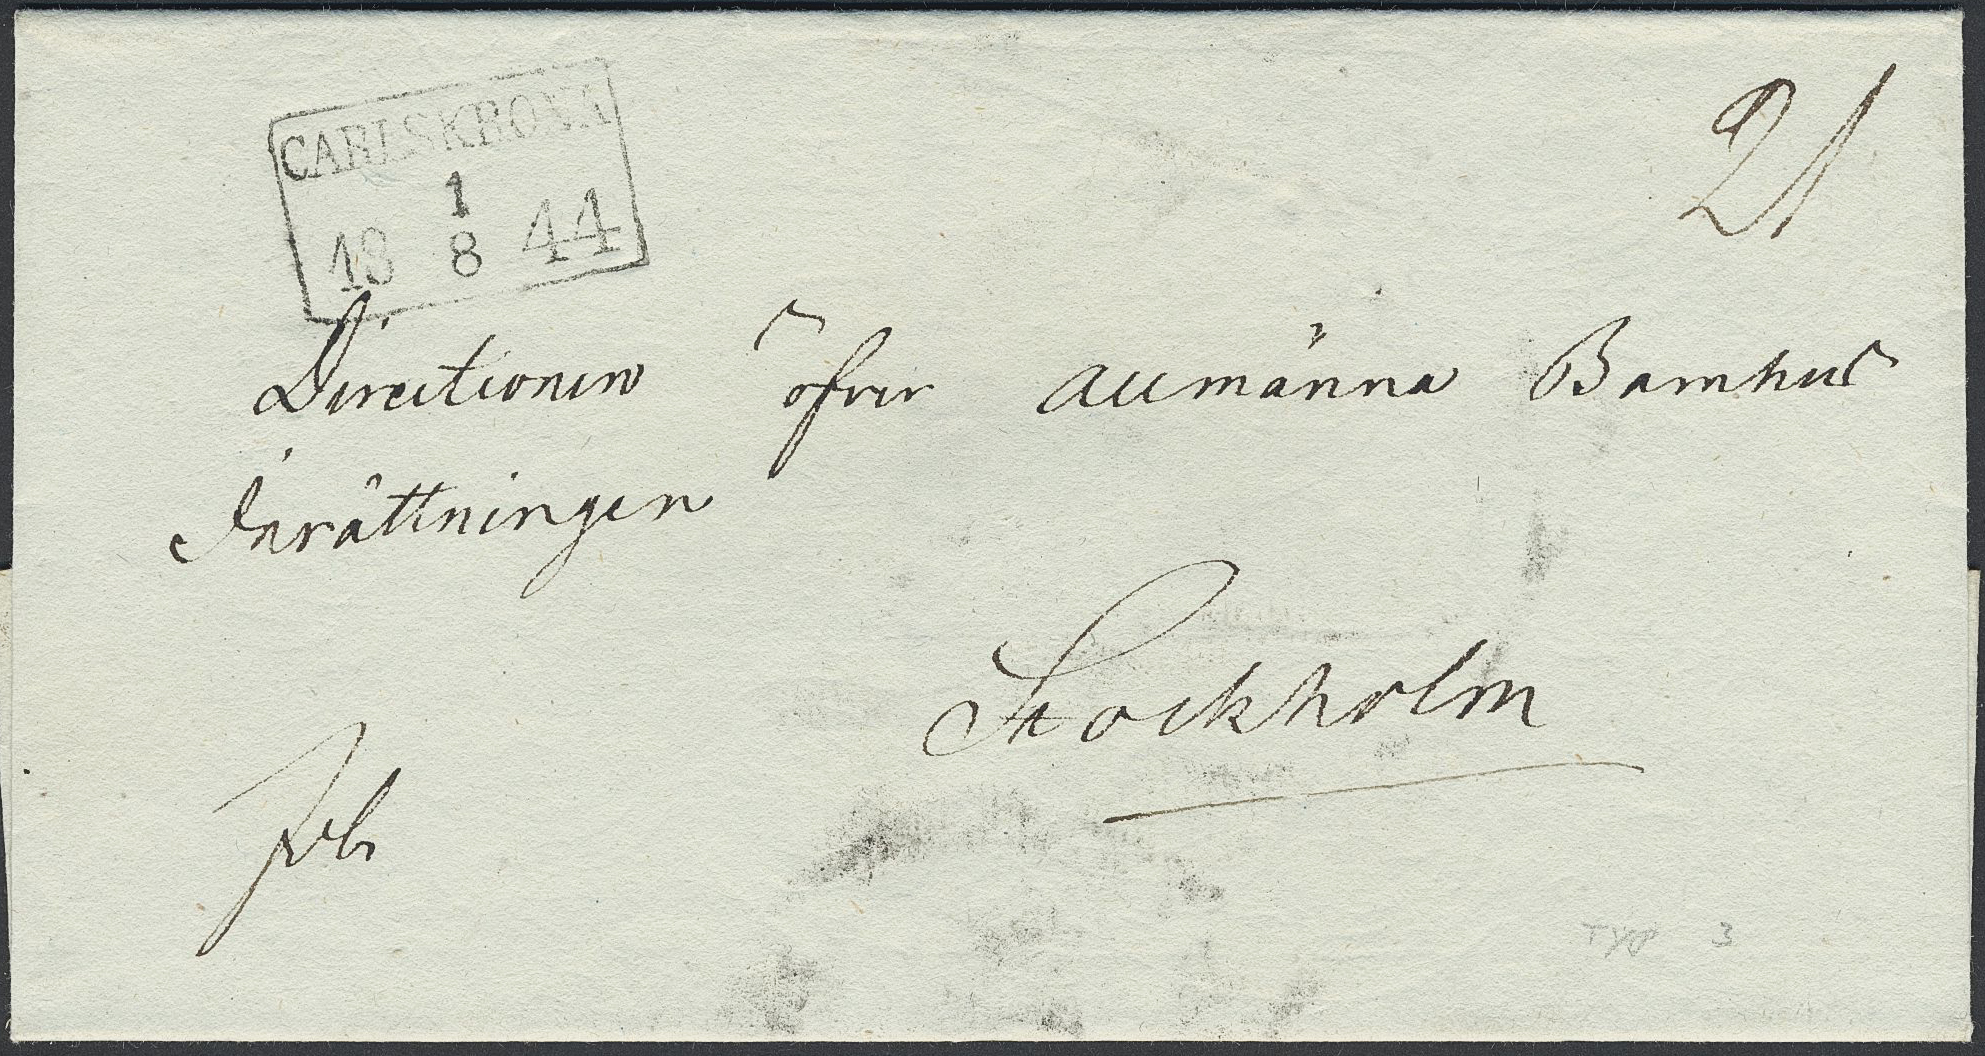 CARLSKRONA
1
18 8 44
21
Directionen öfver allmänna Barnhus
Inrättningen
Stockholm
Typ 3